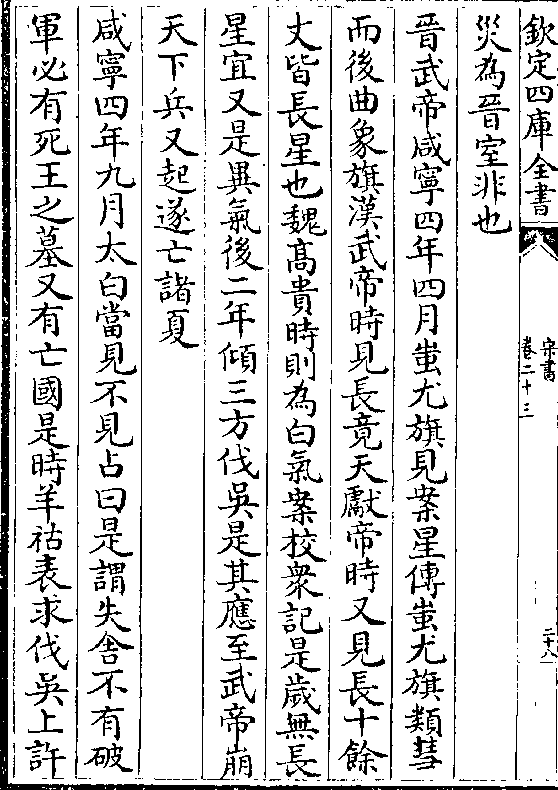 欽定四庫全書
宋書
卷二十三
二十八
災為晉室非也
晉武帝咸寧四年四月蚩尤旗見案星傳蚩尤旗類彗
而後曲象旗漢武帝時見長竟天獻帝時又見長十餘
丈皆長星也魏髙貴時則為白氣案校衆記是歲無長
星宜又是異氣後二年傾三方伐吳是其應至武帝崩
天下兵又起遂亡諸夏
咸寧四年九月太白當見不見占曰是謂失舍不有破
軍必有死王之墓又有亡國是時羊祜表求伐吳上許